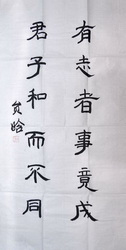 有志者事竟成
君子和而不同